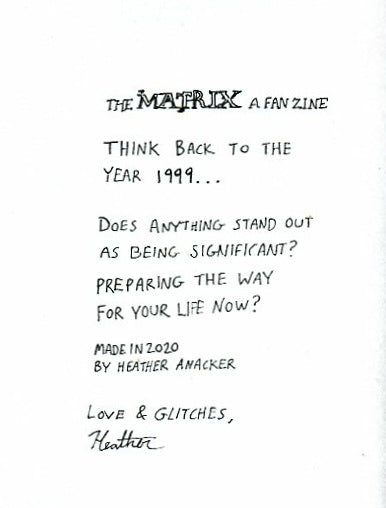 THE MATRIX A FAN ZINE
THINK BACK TO THE
YEAR 1999...
DOES ANYTHING STAND OUT
AS BEING SIGNIFICANT?
PREPARING THE WAY
FOR YOUR LIFE NOW?
MADE IN 2020
BY HEATHER ANACKER
LOVE & GLITCHES,
Heather